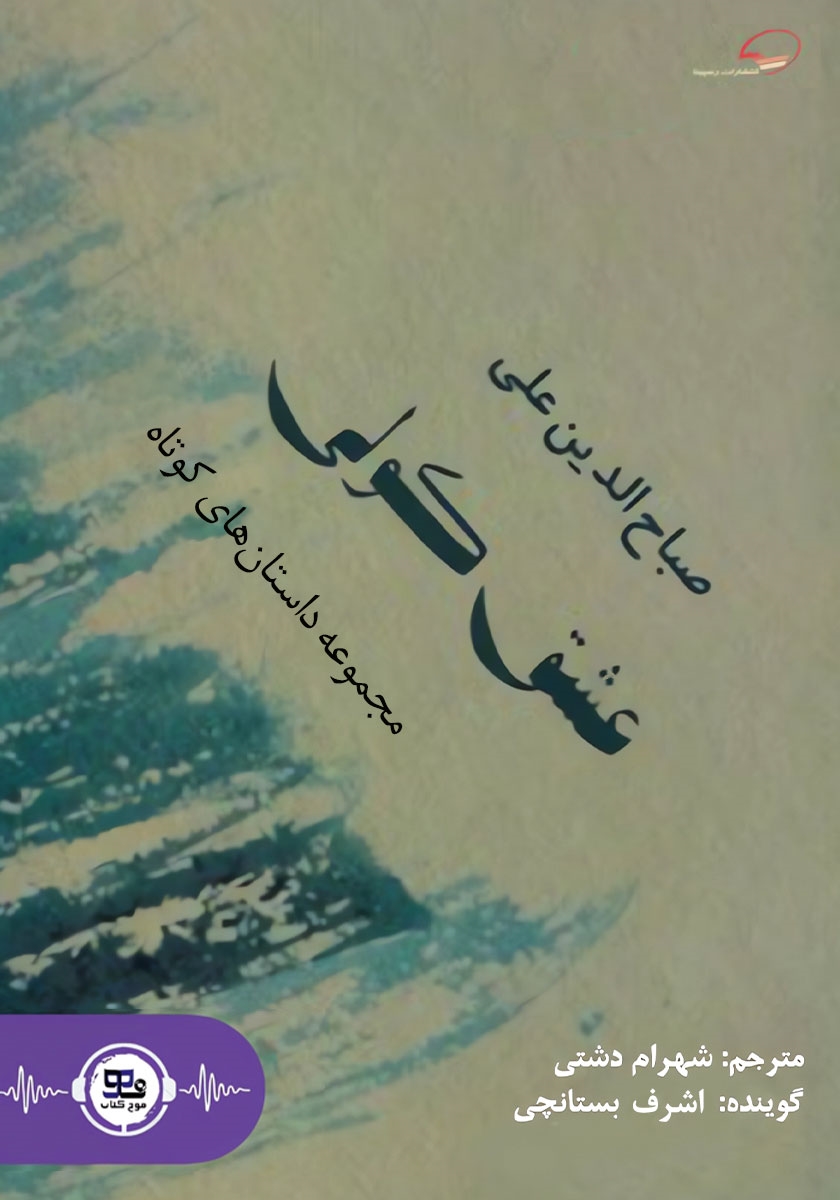 صباح الدین علی
عشق کولی
مجموعه داستان‌های کوتاه
مترجم: شهرام دشتی
گوینده: اشرف بستانچی
موج کتاب